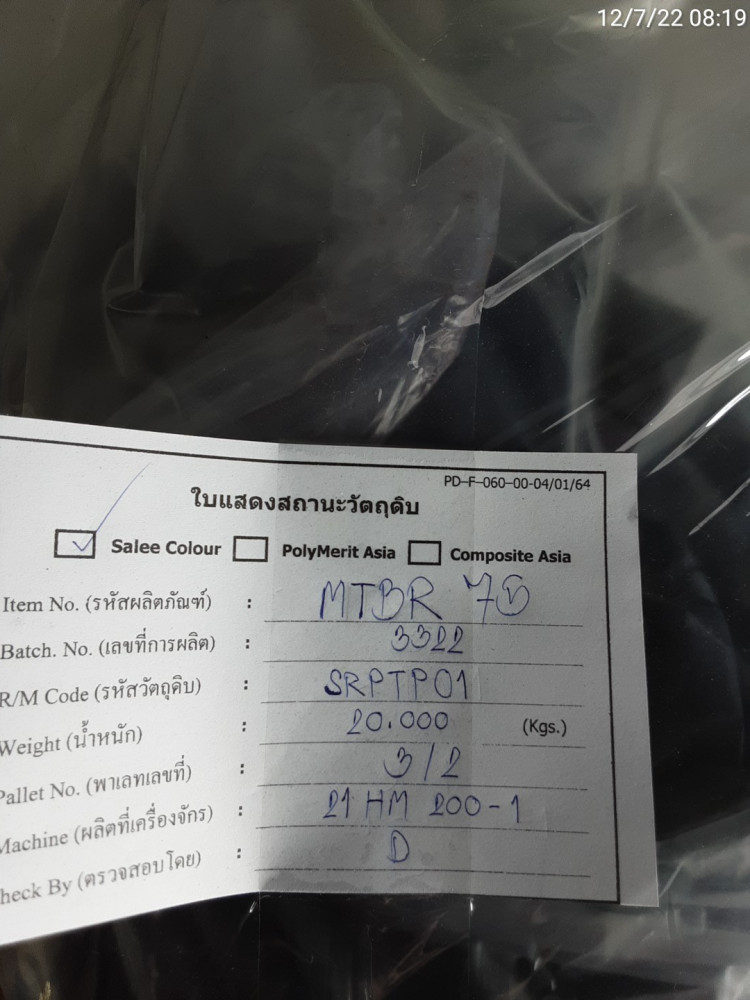 12/7/22 08:19
PD-F-060-00-04/01/64
ใบแสดงสถานะวัตถุดิบ
Salee Colour PolyMerit Asia Composite Asia
Item No. (รหัสผลิตภัณฑ์) : MTBR
Batch. No. (เลขที่การผลิต) : 3322
R/M Code (รหัสวัตถุดิบ) : SRPTP01
Weight (น้ำหนัก) : 20.000 (Kgs.)
Pallet No. (พาเลทเลขที่) : 3/2
Machine (ผลิตที่เครื่องจักร) : 21 HM 200-1
heck By (ตรวจสอบโดย) : D